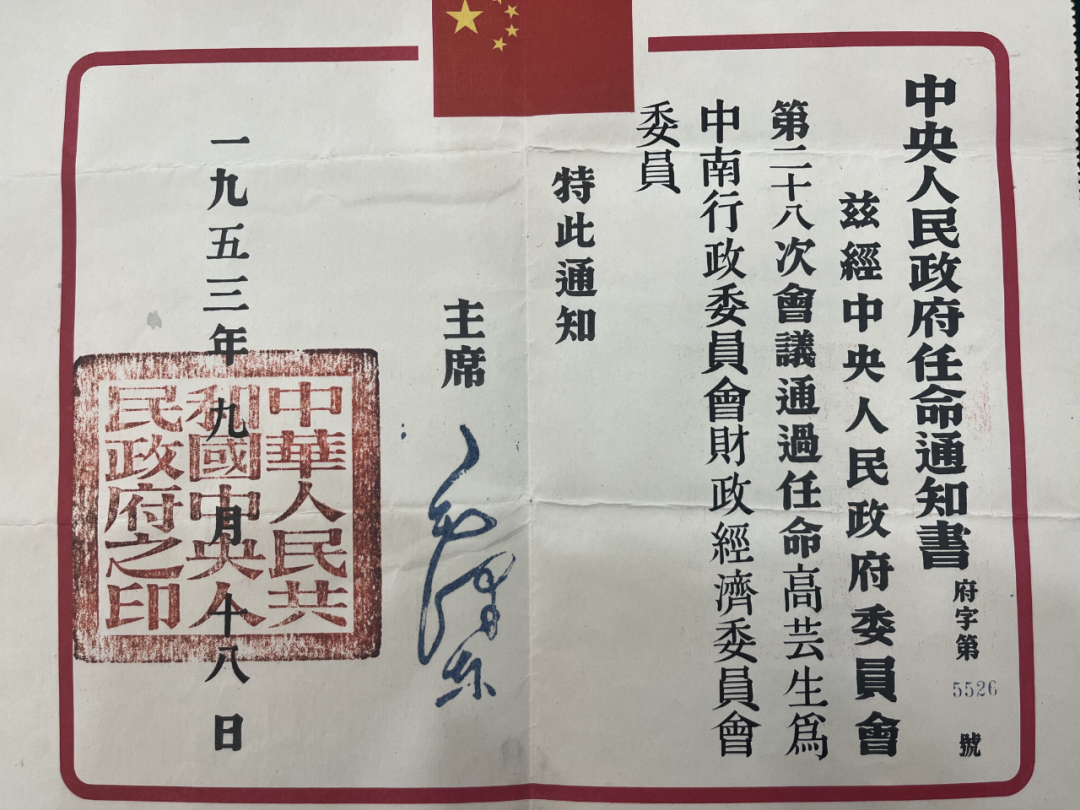 中央人民政府任命通知書
府字第5526號
茲經中央人民政府委員會
第二十八次會議通過任命高芸生爲
中南行政委員會財政經濟委員會
委員
特此通知
主席
毛澤东
一九五三年九月十八日
中華人民共
和國中央人
民政府之印